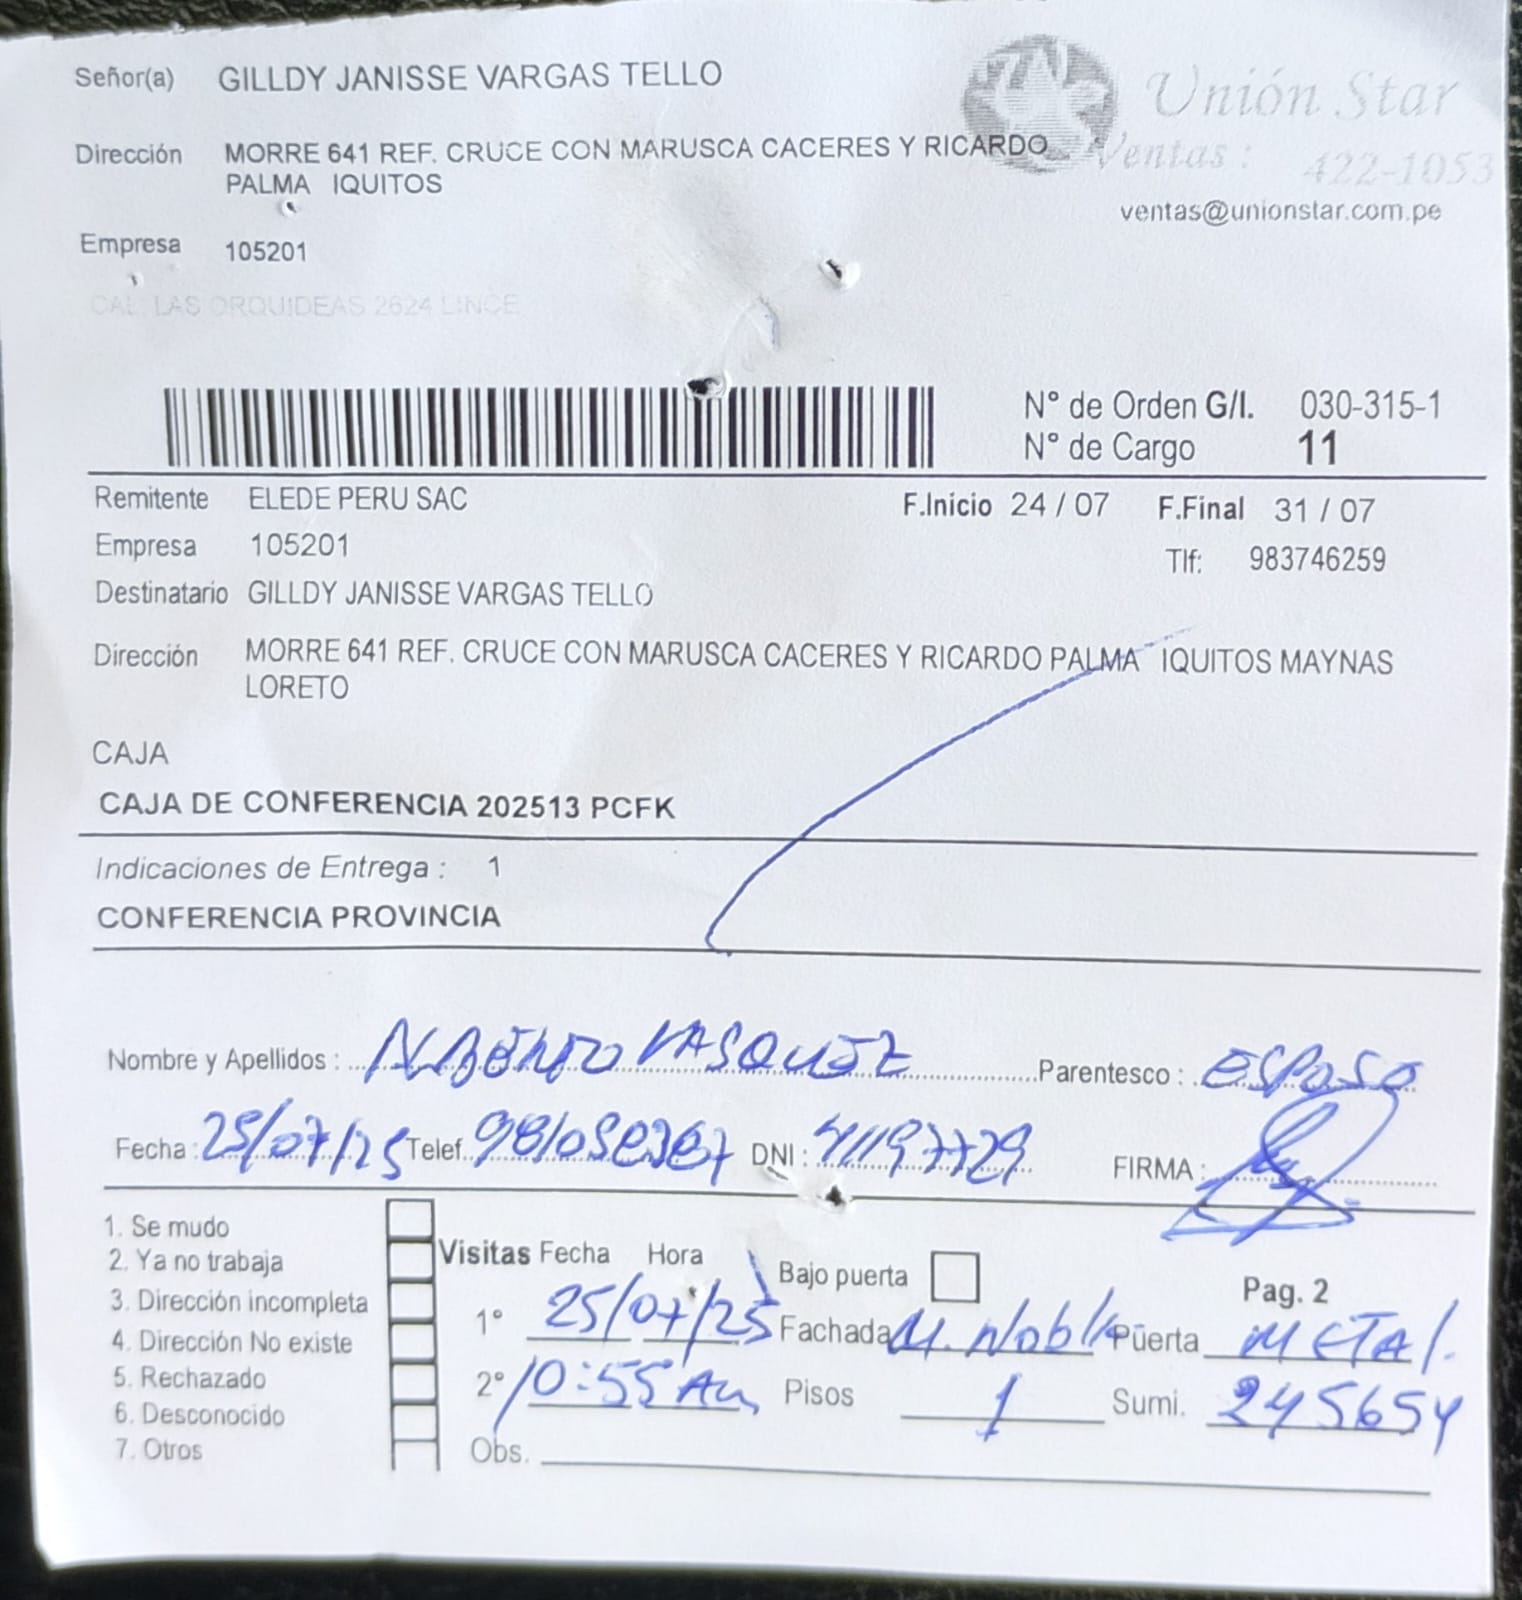 Señor(a) GILLDY JANISSE VARGAS TELLO
Unión Star
Dirección MORRE 641 REF. CRUCE CON MARUSCA CACERES Y RICARDO
Ventas : 422-1053
PALMA IQUITOS
ventas@unionstar.com.pe
Empresa 105201
CAL. LAS ORQUIDEAS 2624 LINCE
N° de Orden G/I. 030-315-1
N° de Cargo 11
Remitente ELEDE PERU SAC F.Inicio 24 / 07 F.Final 31 / 07
Empresa 105201 Tlf: 983746259
Destinatario GILLDY JANISSE VARGAS TELLO
Dirección MORRE 641 REF. CRUCE CON MARUSCA CACERES Y RICARDO PALMA IQUITOS MAYNAS
LORETO
CAJA
CAJA DE CONFERENCIA 202513 PCFK
Indicaciones de Entrega : 1
CONFERENCIA PROVINCIA
Nombre y Apellidos : Alberto VASQUEZ Parentesco : esposo
Fecha : 25/07/25 Telef. DNI : 41197729 FIRMA :
1. Se mudo
2. Ya no trabaja
3. Dirección incompleta
4. Dirección No existe
5. Rechazado
6. Desconocido
7. Otros
Visitas Fecha Hora Bajo puerta Pag. 2
1° 25/07/25 Fachada M. Noble Puerta METAL.
2° 10:55 Am Pisos 1 Sumi. 245654
Obs.